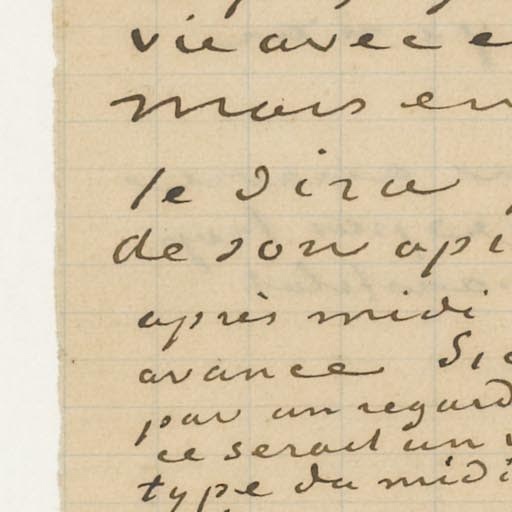 vie avec e
mais en
le dira
de son opi
après midi
avance Si
par un regard
ce serait un
type du midi